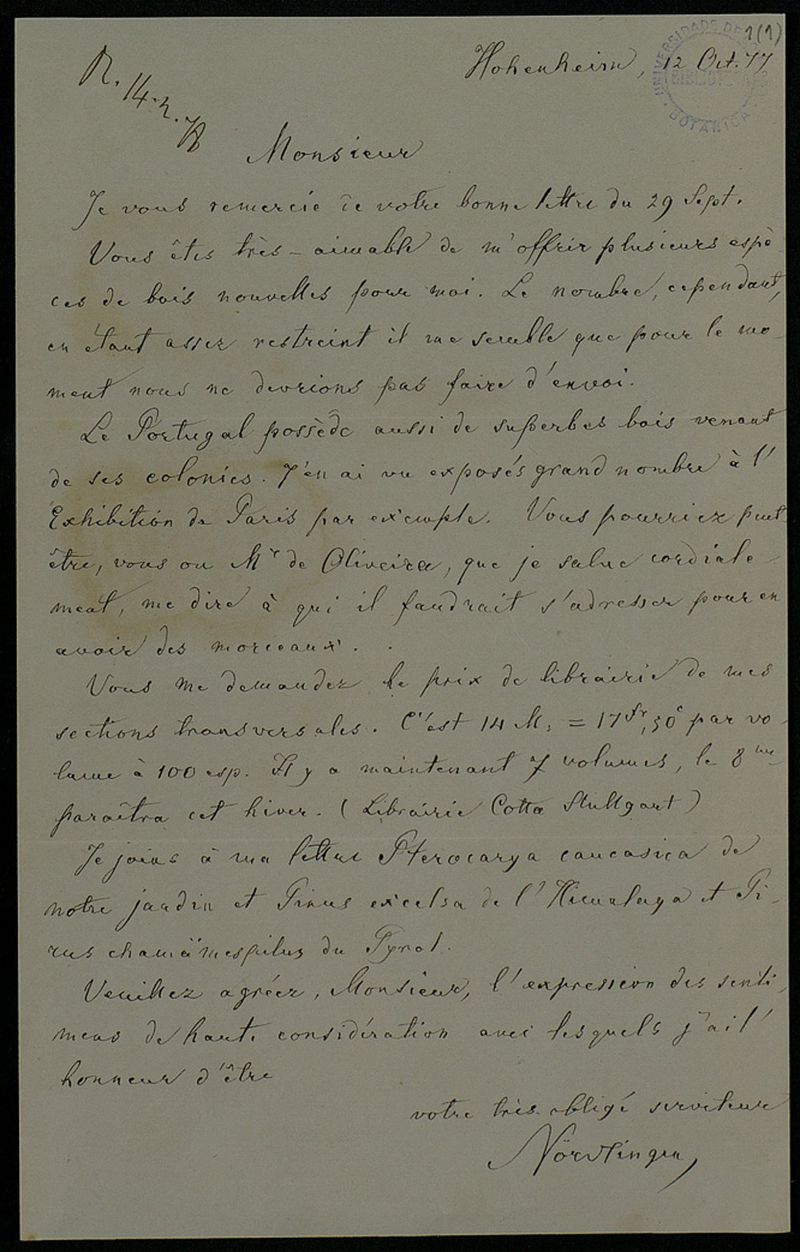 1(1)
Hohenheim, 12 Oct. 77
UNIVERSIDADE DE
BIBLIOTECA
BOTANICA
R. 14.2.78
Monsieur
Je vous remercie de votre bonne lettre du 29 Sept.
Vous êtes très-aimable de m'offrir plusieurs espè-
ces de bois nouvelles pour moi. Le nombre, cependant,
en étant assez restreint il me semble que pour le mo-
ment nous ne devrions pas faire d'envoi.
Le Portugal possède aussi de superbes bois venant
de ses colonies. J'en ai vu exposés grand nombre à l'
Exhibition de Paris par exemple. Vous pourriez peut
être, vous ou Mr de Oliveira, que je salue cordiale-
ment, me dire à qui il faudrait s'adresser pour en
avoir des morceaux.
Vous me demandez le prix de librairie de mes
sections transversales. C'est 14 M. = 17 fr, 50 c par vo-
lume à 100 esp. Il y a maintenant 7 volumes, le 8me
paraîtra cet hiver. (Librairie Cotta Stuttgart)
Je joins à ma lettre Pterocarya caucasica de
notre jardin et Pinus excelsa de l'Himalaya et Pi-
rus chamämespilus du Tyrol.
Veuillez agréer, Monsieur, l'expression des senti-
mens de haute considération avec lesquels j'ai l'
honneur d'être
votre très obligé serviteur
Nördlinger